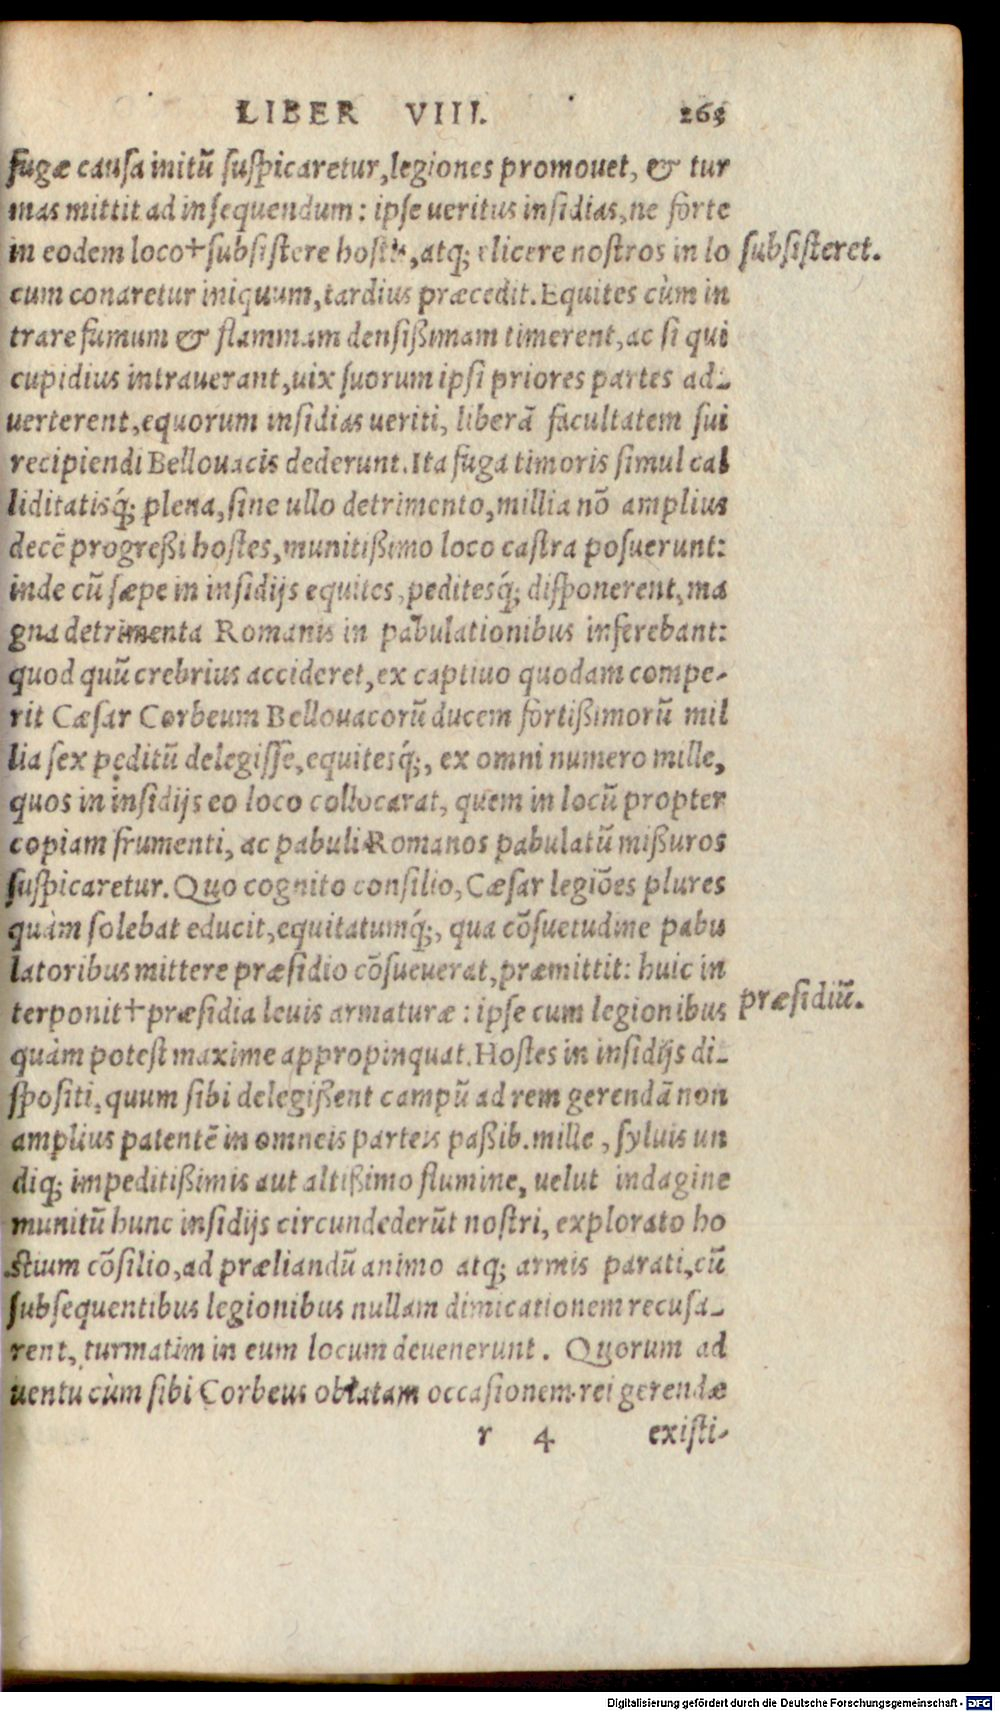 LIBER VIII. 263
fugæ causa initū suspicaretur, legiones promouet, & tur
mas mittit ad insequendum: ipse ueritus insidias, ne forte
in eodem loco+subsistere hostis, atq; elicere nostros in lo subsisteret.
cum conaretur iniquum, tardius præcedit. Equites cùm in
trare fumum & flammam densißimam timerent, ac si qui
cupidius intrauerant, uix suorum ipsi priores partes ad-
uerterent, equorum insidias ueriti, liberā facultatem sui
recipiendi Bellouacis dederunt. Ita fuga timoris simul cal
liditatisq́; plena, sine ullo detrimento, millia nō amplius
decē progreßi hostes, munitißimo loco castra posuerunt:
inde cū sæpe in insidijs equites, peditesq́; disponerent, ma
gna detrimenta Romanis in pabulationibus inferebant:
quod quū crebrius accideret, ex captiuo quodam compe-
rit Cæsar Corbeum Bellouacorū ducem fortißimorū mil
lia sex peditū delegisse, equitesq́;, ex omni numero mille,
quos in insidijs eo loco collocarat, quem in locū propter
copiam frumenti, ac pabuli Romanos pabulatū mißuros
suspicaretur. Quo cognito consilio, Cæsar legiōes plures
quàm solebat educit, equitatumq́;, qua cōsuetudine pabu
latoribus mittere præsidio cōsueuerat, præmittit: huic in
terponit+præsidia leuis armaturæ: ipse cum legionibus præsidiū.
quàm potest maxime appropinquat. Hostes in insidijs di-
spositi, quum sibi delegißent campū ad rem gerendā non
amplius patentē in omneis parteis paßib. mille, syluis un
diq; impeditißimis aut altißimo flumine, uelut indagine
munitū hunc insidijs circundederūt nostri, explorato ho
stium cōsilio, ad præliandū animo atq; armis parati, cū
subsequentibus legionibus nullam dimicationem recusa-
rent, turmatim in eum locum deuenerunt. Quorum ad
uentu cùm sibi Corbeus oblatam occasionem rei gerendæ
r 4 existi-
Digitalisierung gefördert durch die Deutsche Forschungsgemeinschaft - DFG